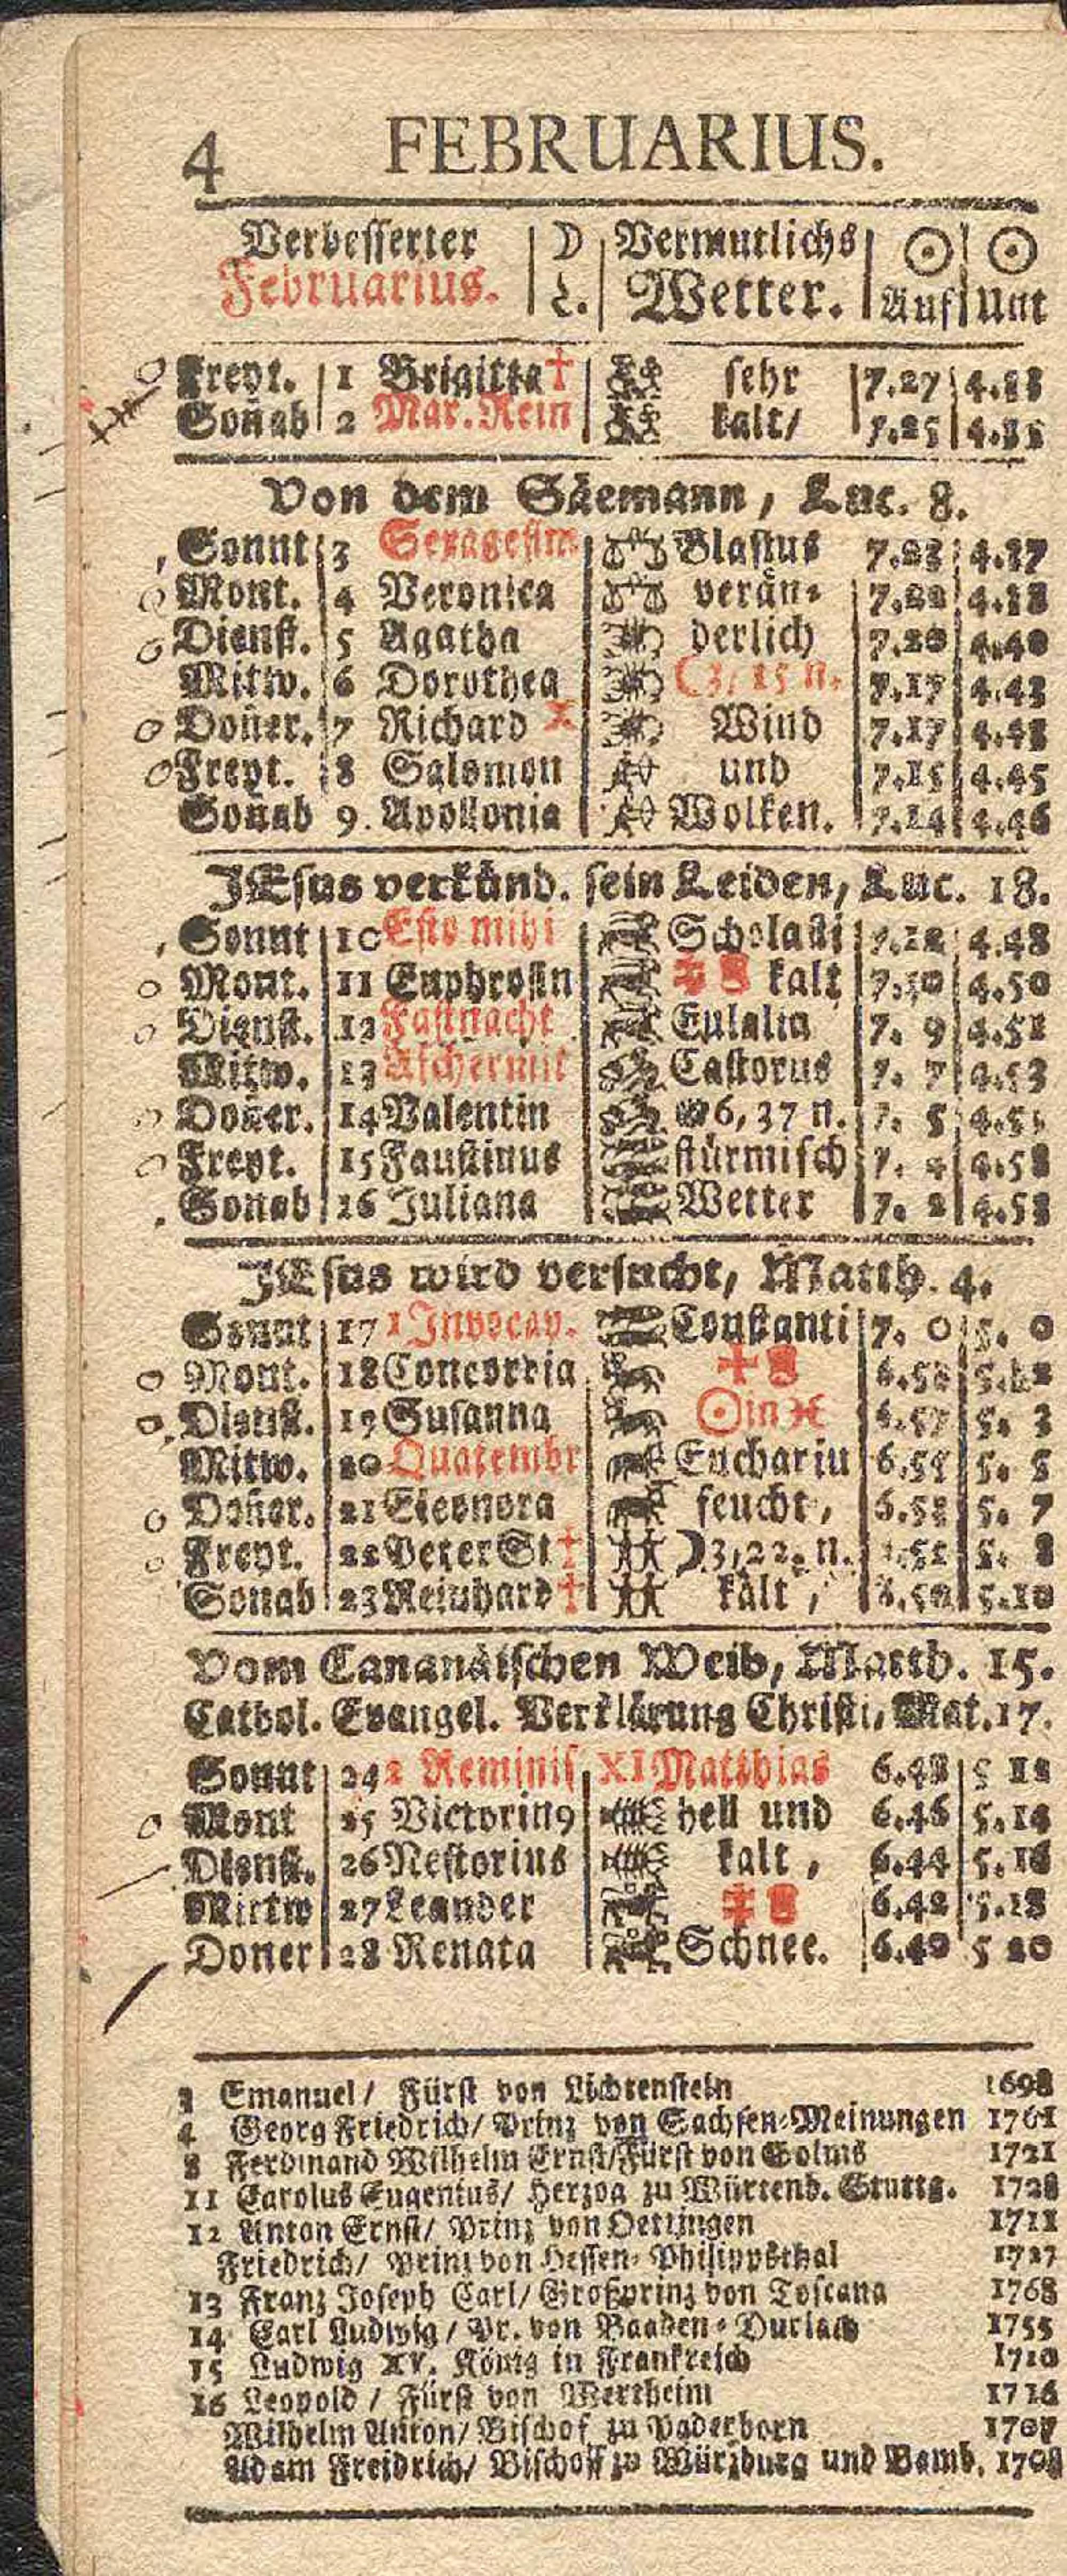 4 FEBRUARIUS.
Verbesserter | ☽ | Vermutlichs | ☉ | ☉
Februarius. | L. | Wetter. | Auf | Unt
Freyt. 1 Brigitta † sehr 7.27 4.33
Soñab 2 Mar. Rein kalt/ 7.25 4.35
Von dem Säemann, Luc. 8.
Sonnt 3 Sexagesim. Blasius 7.23 4.37
Mont. 4 Veronica verän⸗ 7.22 4.38
Dienst. 5 Agatha derlich 7.20 4.40
Mittw. 6 Dorothea ☾ 3, 15 n. 7.17 4.43
Doñer. 7 Richard Wind 7.17 4.43
Freyt. 8 Salomon und 7.15 4.45
Soñab 9. Apollonia Wolken. 7.14 4.46
JEsus verkünd. sein Leiden, Luc. 18.
Sonnt 10 Esto mihi Scholasti 7.12 4.48
Mont. 11 Euphrosin kalt 7.10 4.50
Dienst. 12 Fastnacht Eulalia 7. 9 4.51
Mittw. 13 Aschermit Castorus 7. 7 4.53
Doñer. 14 Valentin 6, 37 n. 7. 5
Freyt. 15 Faustinus stürmisch 7. 4
Sonab 16 Juliana Wetter 7. 2 4.58
JEsus wird versucht, Matth. 4.
Sonnt 17 1 Invocav. Constanti 7. 0 5. 0
Mont. 18 Concordia
Dienst. 19 Susanna ☉ in ♓ 6.57 5. 3
Mittw. 20 Quatembr Euchariu 6.55 5. 5
Doñer. 21 Eleonora feucht, 6.53 5. 7
Freyt. 22 Peter St † ☽ 3, 22. n. 5. 8
Sonab 23 Reinhard † kalt, 6.50 5.10
Vom Cananäischen Weib, Matth. 15.
Cathol. Evangel. Verklärung Christi, Mat. 17.
Sonnt 24 2 Reminis XI Matthias 6.48 5 12
Mont 25 Victorin9 hell und 6.46 5.14
Dienst. 26 Nestorius kalt, 6.44 5.16
Mittw 27 Leander 6.42 5.18
Doner 28 Renata Schnee. 6.40 5 20
3 Emanuel/ Fürst von Lichtenstein 1698
4 Georg Friedrich/ Prinz von Sachsen⸗Meinungen 1761
8 Ferdinand Wilhelm Ernst/Fürst von Solms 1721
11 Carolus Eugenius/ Herzog zu Würtenb. Stuttg. 1728
12 Anton Ernst/ Prinz von Oettingen 1711
Friedrich/ Prinz von Hessen⸗Philippsthal 1727
13 Franz Joseph Carl/ Großprinz von Toscana 1768
14 Carl Ludwig/ Pr. von Baaden⸗Durlach 1755
15 Ludwig XV. König in Frankreich 1710
16 Leopold/ Fürst von Wertheim 1716
Wilhelm Anton/ Bischof zu Paderborn 1707
Adam Freidrich/ Bischoff zu Würzburg und Bamb. 1708